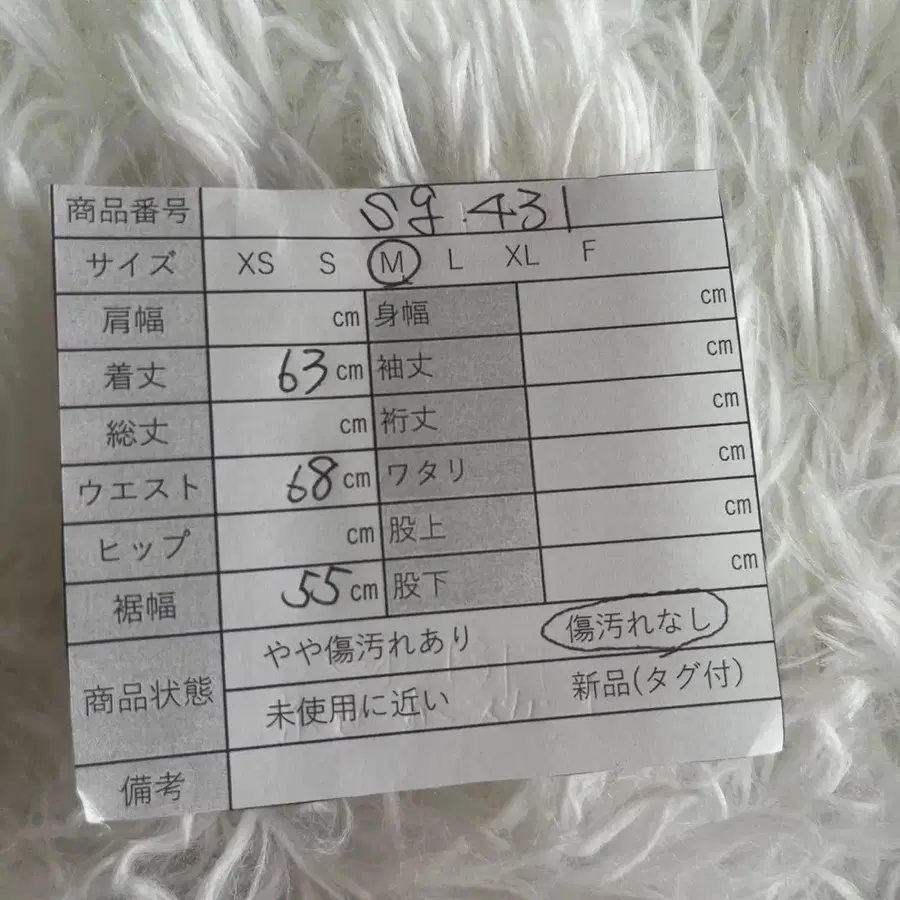 商品番号 sg.431
サイズ XS S M L XL F
肩幅 cm 身幅 cm
着丈 63cm 袖丈 cm
総丈 cm 裄丈 cm
ウエスト 68cm ワタリ cm
ヒップ cm 股上 cm
裾幅 55cm 股下 cm
商品状態 やや傷汚れあり 傷汚れなし
未使用に近い 新品(タグ付)
備考